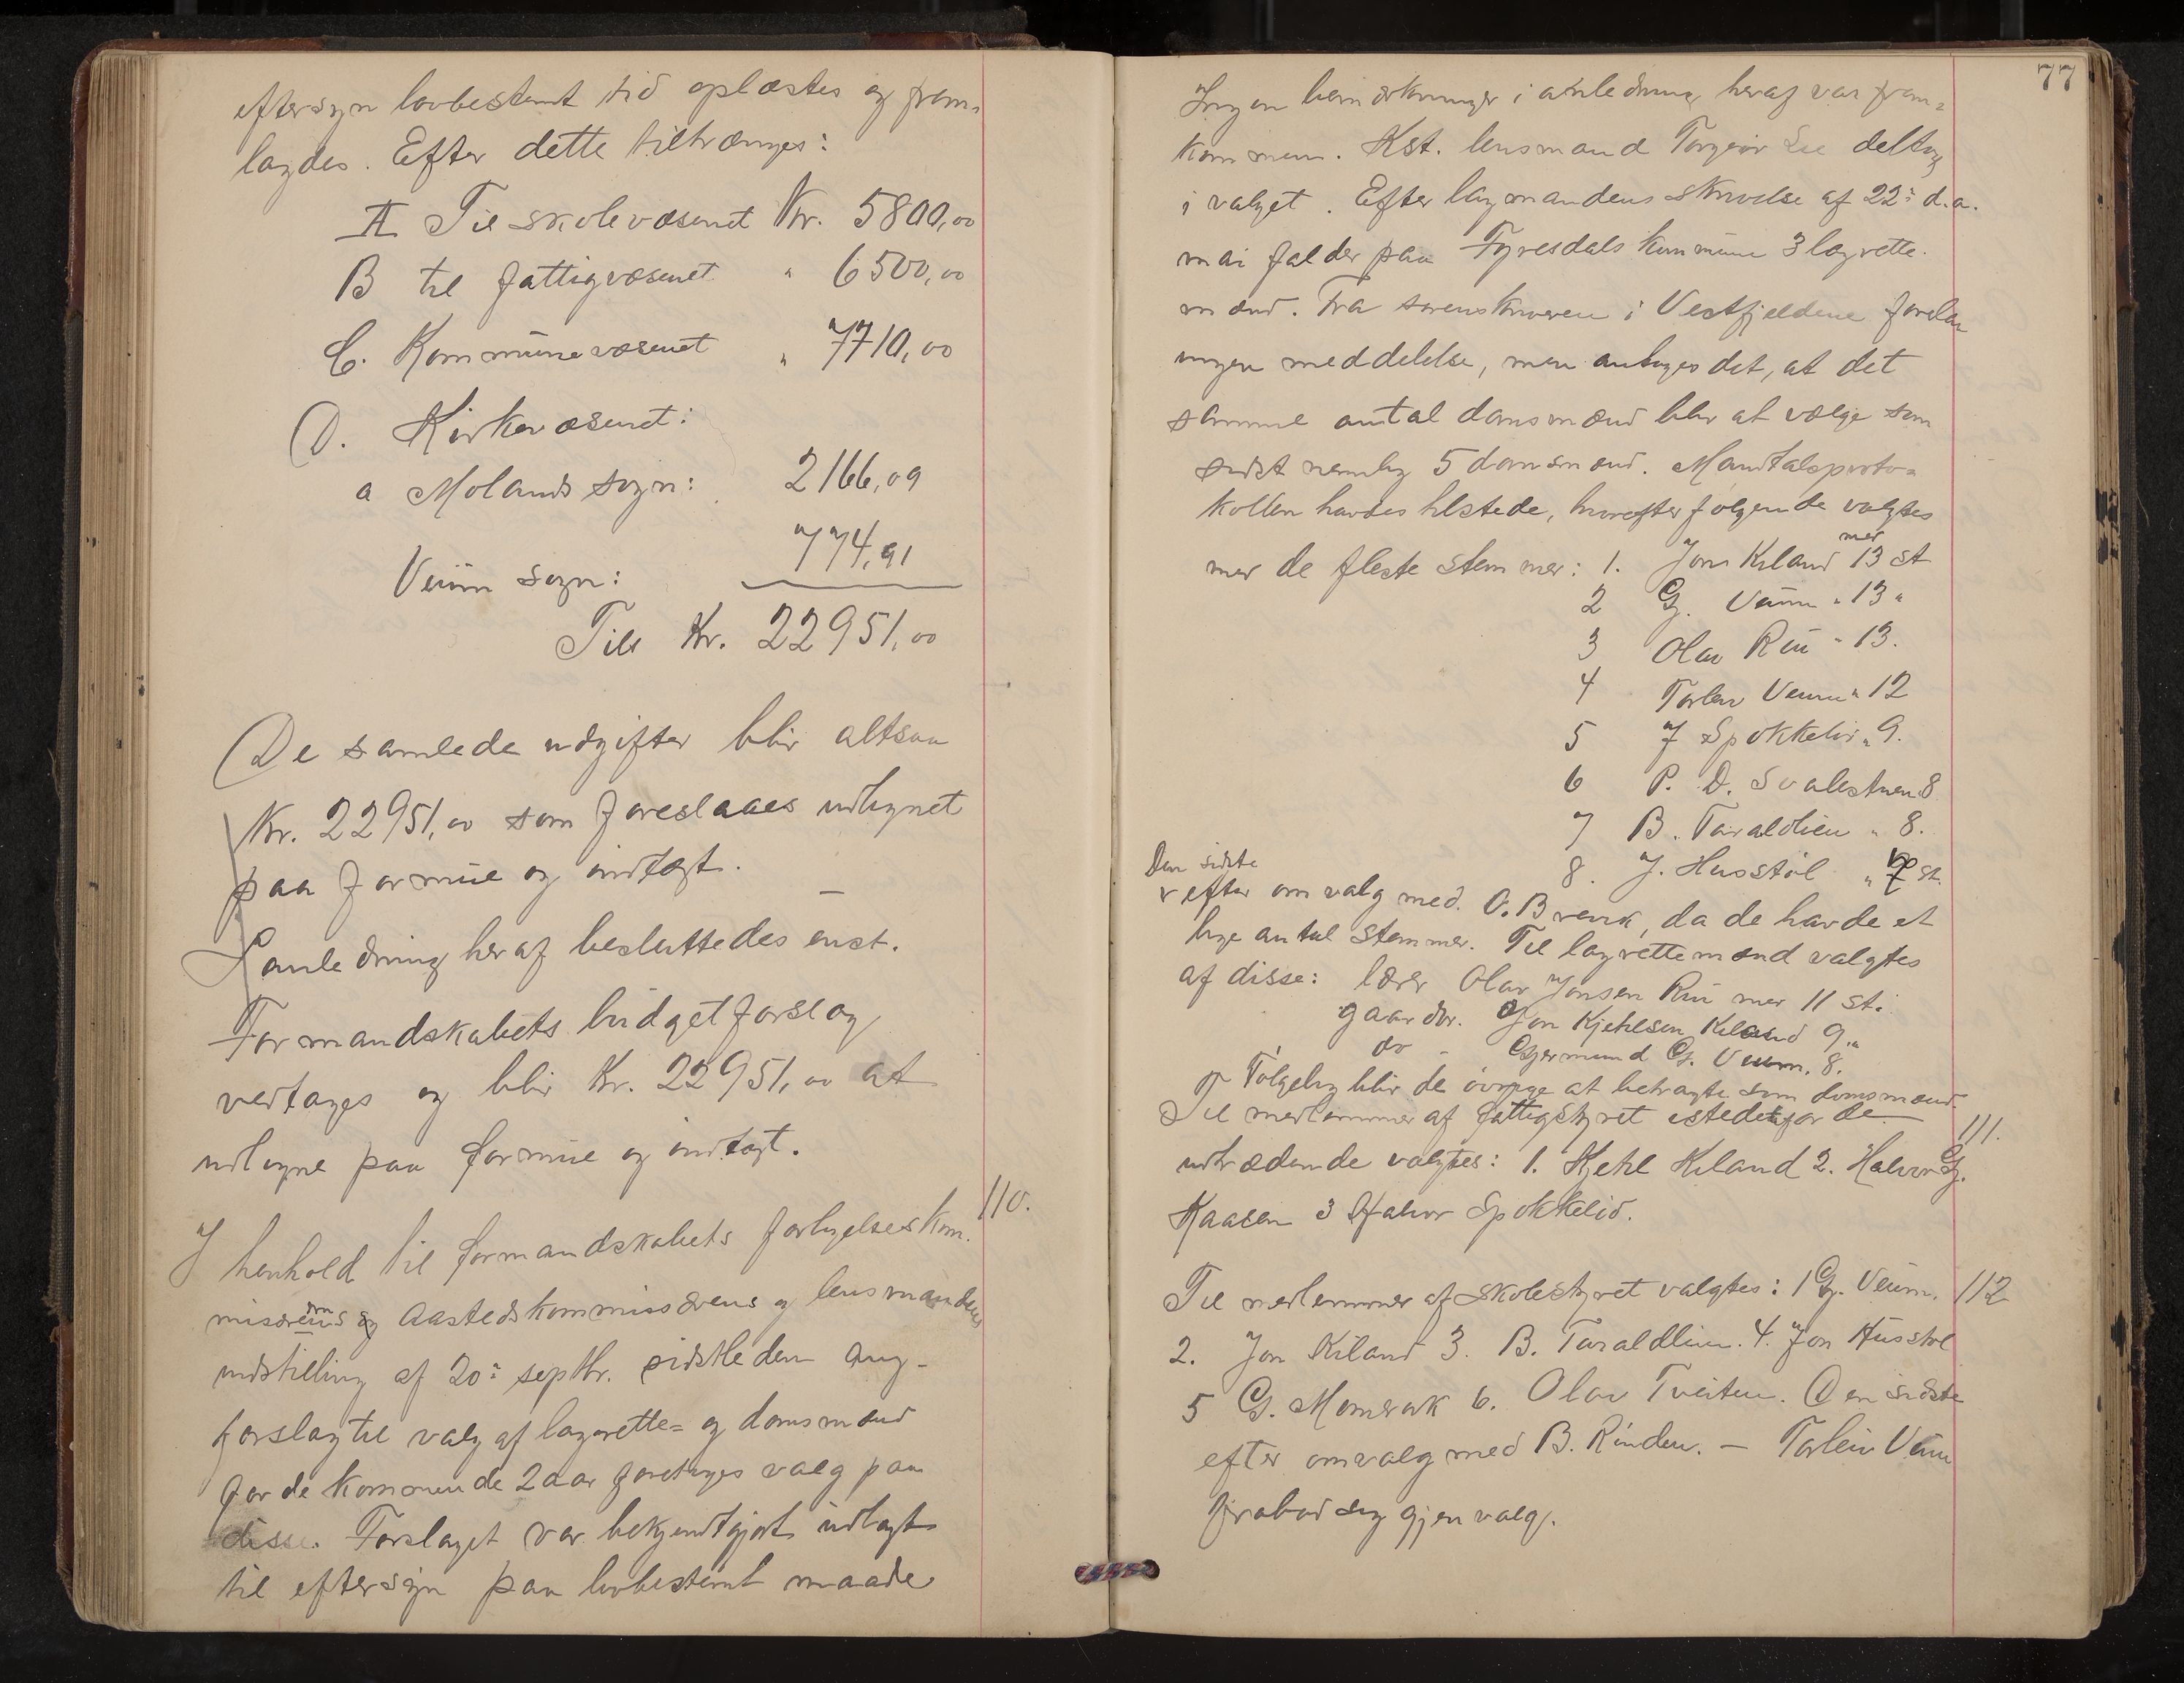 eftersyn lovbestemt tid oplæstes og frem=
lagdes. Efter dette tiltrænges:
A Til skolevæsenet Kr. 5800,00
B til fattigvæsenet " 6500,00
C. Kommunevæsenet " 7710,00
D. Kirkevæsenet:
a Molands sogn: 2166,09
774,91
Veum sogn:
Tils Kr. 22951,00
De samlede udgifter blir altsaa
Kr. 22951,00 som foreslaaes udlignet
paa formue og indtægt. —
I anledning heraf besluttedes enst.
Formandskabets budgetforslag
vedtages og blir Kr. 22951,00 at
udligne paa formue og indtægt.
110.
I henhold til formandskabets forligelseskom.
misærens og aastedskommissærens og lensmandens
indstilling af 20: septbr. sidstleden ang.
forslag til valg af lagrette= og domsmænd
for de kommende 2 aar foretages valg paa
disse. Forslaget var bekjendtgjort udlagt
til eftersyn paa lovbestemt maade
77
Ingen bemærkninger i anledning heraf var frem=
kommen. Kst. lensmand Torgeir Lie deltog
i valget. Efter lagmandens skrivelse af 22: d.a.
mai falder paa Fyresdals kommune 3 lagrette.
mænd. Fra sorenskriveren i Vestfjeldene forelaa
ingen meddelelse, men antoges det, at det
samme antal domsmænd blir at vælge som
sidst nemlig 5 domsmænd. Mandtalsproto=
kollen havdes tilstede, hvorefter følgende valgtes
mer de fleste stemmer: 1. Jon Kiland mer 13 st
2 G. Veum " 13 "
3 Olav Rui " 13.
4 Torleiv Veum " 12
5 J Spokkeliv " 9.
6 P. D. Svalestuen 8
7 B. Taraldlien " 8.
8. J. Husstøl " st.
Den sidste
efter omvalg med O. Brenk, da de havde et
lige antal stemmer. Til lagrettemænd valgtes
af disse: lærer Olav Jonsen Rui mer 11 st.
gaardbr. Jon Kjetilsen Kiland 9 "
do - Gjermund G. Veum. 8.
Følgelig blir de øvrige at betragte som domsmænd.
111.
Til medlemmer af fattigstyret istedetfor de
udtrædende valgtes: 1. Kjetil Kiland 2. Halvor G.
Kaasen 3 Halvor Spokkelid.
112
Til medlemmer af skolestyret valgtes: 1 G. Veum.
2. Jon Kiland 3. B. Taraldlien. 4. Jon Husstøl
5 G. Momrak 6. Olav Tveiten. Den sidste
efter omvalg med B. Rinden. — Torleiv Veum
frabad sig gjenvalg.